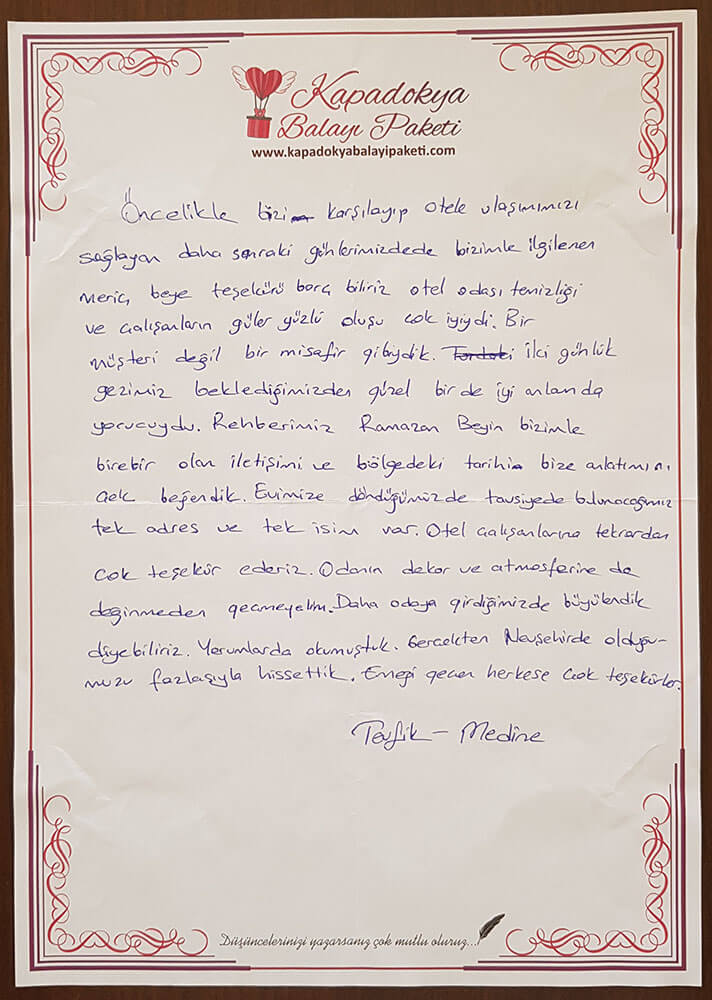 Kapadokya
Balayı Paketi
www.kapadokyabalayipaketi.com
Öncelikle bizi karşılayıp otele ulaşımımızı
sağlayan daha sonraki günlerimizdede bizimle ilgilenen
Meriç beye teşekürü borç biliriz otel odası temizliği
ve çalışanların güler yüzlü oluşu çok iyiydi. Bir
müşteri değil bir misafir gibiydik. İlci günlük
gezimiz beklediğimizden güzel bir de iyi anlamda
yorucuydu. Rehberimiz Ramazan Beyin bizimle
birebir olan iletişimi ve bölgedeki tarihin bize anlatımını
çok beğendik. Evimize döndüğümüzde tavsiyede bulunacağımız
tek adres ve tek isim var. Otel çalışanlarına tekrardan
çok teşekür ederiz. Odanın dekor ve atmosferine de
değinmeden geçmeyelim. Daha odaya girdiğimizde büyülendik
diyebiliriz. Yorumlarda okumuştuk. Gerçekten Nevşehirde olduğu-
muzu fazlasıyla hissettik. Emeği geçen herkese çok teşekürler.
Tevfik - Medine
Düşüncelerinizi yazarsanız çok mutlu oluruz...